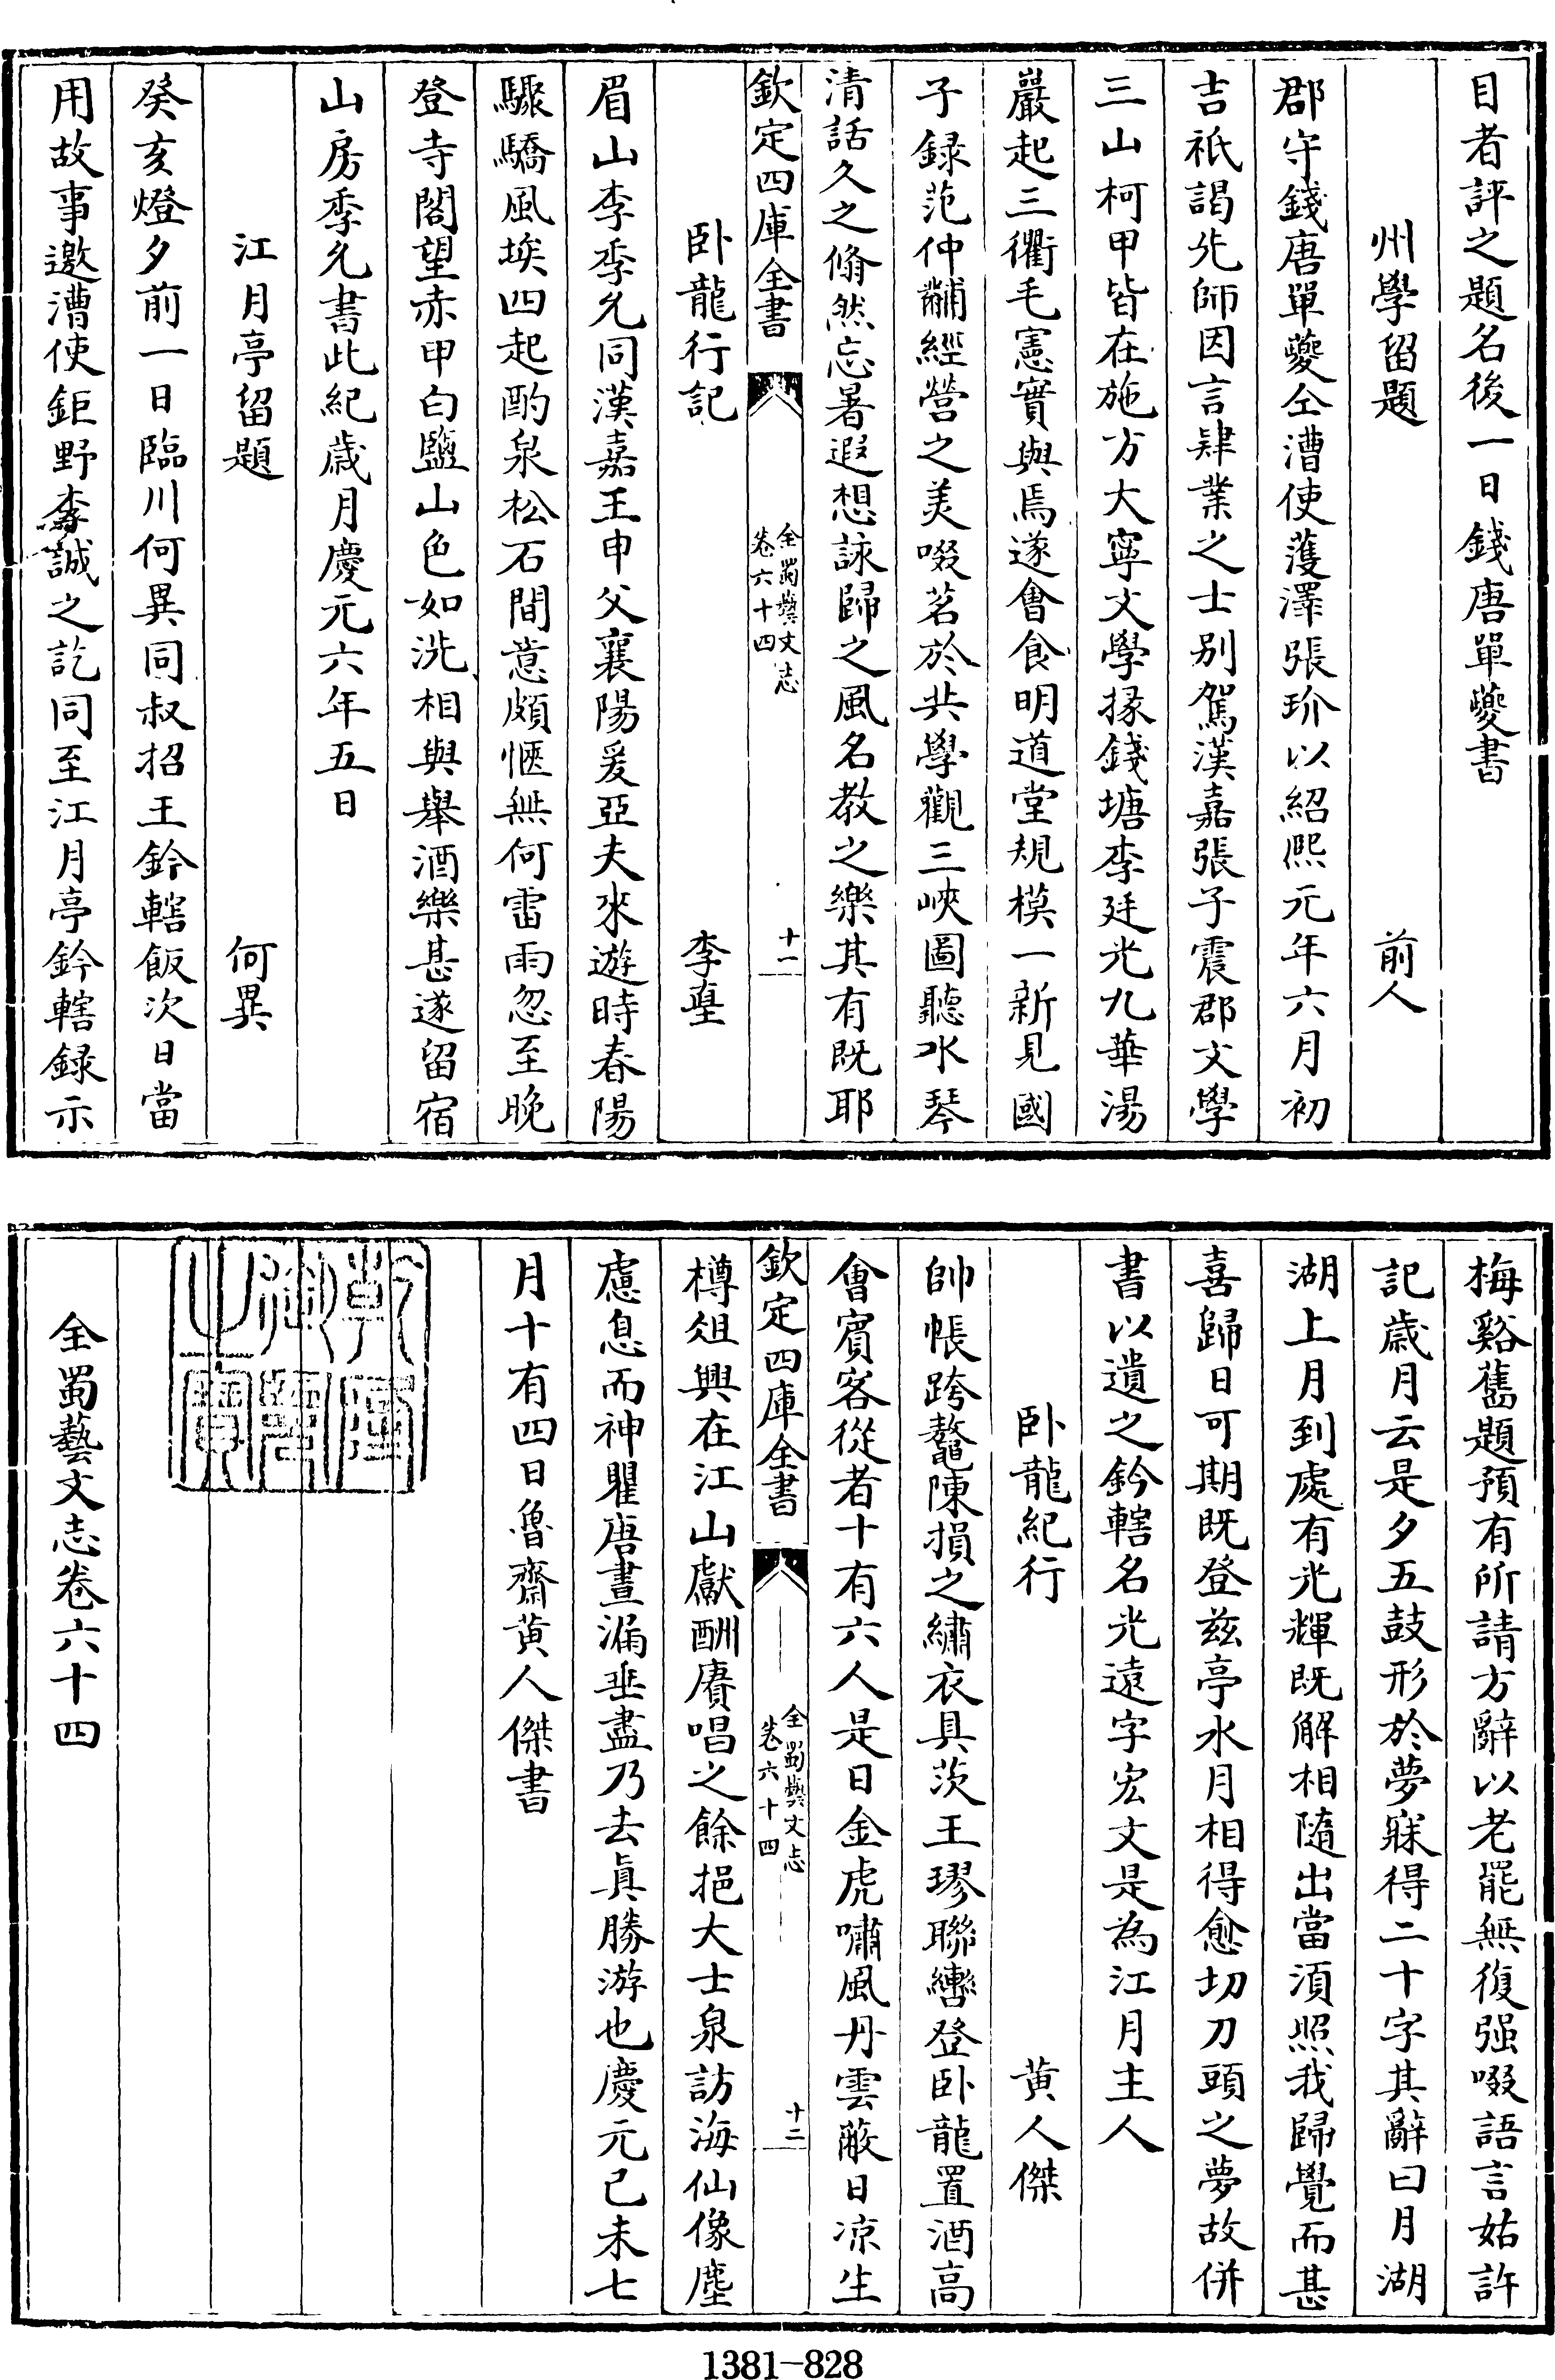 目者評之題名後一日錢唐單夔書
州學留題　前人
郡守錢唐單夔仝漕使濩澤張玠以紹熙元年六月初
吉祇謁先師因言肄業之士别駕漢嘉張子震郡文學
三山柯甲皆在施方大寜文學掾錢塘李廷光九華湯
巖起三衢毛憲實與焉遂會食明道堂規模一新見國
子録范仲黼經營之美啜茗於共學觀三峽圖聽水琴
清話久之翛然忘暑遐想詠歸之風名教之樂其有既耶
欽定四庫全書
全蜀藝文志
卷六十四
十一
卧龍行記　李壁
眉山李季允同漢嘉王申父襄陽爰亞夫來遊時春陽
驟驕風埃四起酌泉松石間意頗愜無何雷雨忽至晚
登寺閣望赤甲白鹽山色如洗相與舉酒樂甚遂留宿
山房季允書此紀歳月慶元六年五日
江月亭留題　何異
癸亥燈夕前一日臨川何異同叔招王鈐轄飯次日當
用故事邀漕使鉅野李誠之訖同至江月亭鈐轄録示
梅谿舊題預有所請方辭以老罷無復强啜語言姑許
記歳月云是夕五鼓形於夢寐得二十字其辭曰月湖
湖上月到處有光輝既解相隨出當湏照我歸覺而甚
喜歸日可期既登兹亭水月相得愈切刀頭之夢故併
書以遺之鈐轄名光遠字宏文是為江月主人
卧龍紀行　黄人傑
帥帳跨鼇陳損之繡衣具茨王璆聯轡登卧龍置酒高
會賓客從者十有六人是日金虎嘯風丹雲蔽日凉生
欽定四庫全書
全蜀藝文志
卷六十四
十二
樽俎興在江山獻酬賡唱之餘挹大士泉訪海仙像塵
慮息而神瞿唐晝漏垂盡乃去真勝游也慶元己未七
月十有四日魯齋黄人傑書
乾隆御覽之寶
全蜀藝文志卷六十四
1381-828